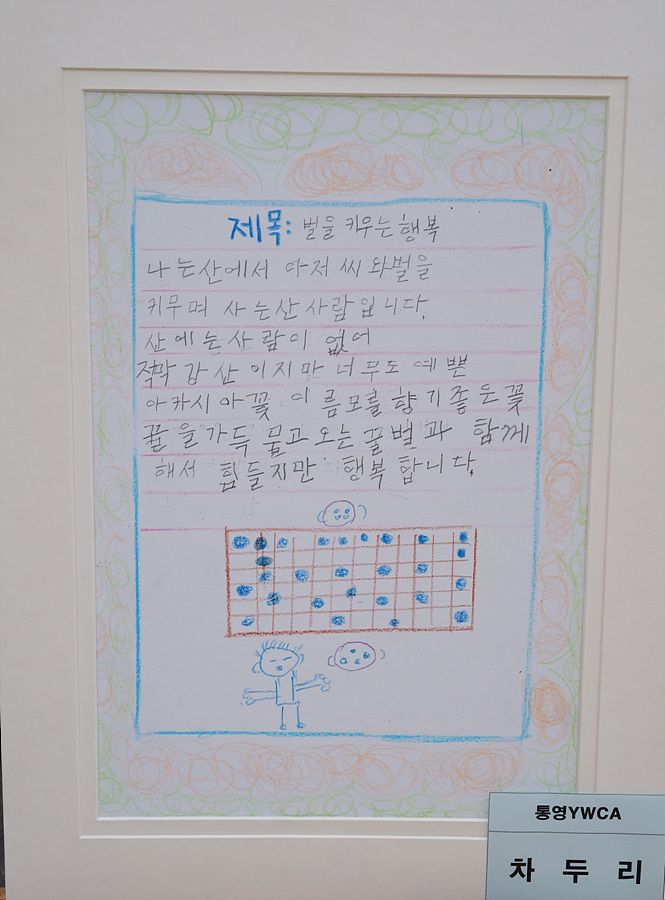 제목: 벌을 키우는 행복
나는 산에서 아저씨와 벌을
키무며 사는 산 사람 입니다.
산에는 사람이 없어
적막감 산 이지만 너무도 예쁜
아카시아꽃, 이름모를 향기좋은 꽃
꿀을 가득 물고 오는 꿀벌과 함께
해서 힘들지만 행복합니다.
통영YWCA
차 두 리